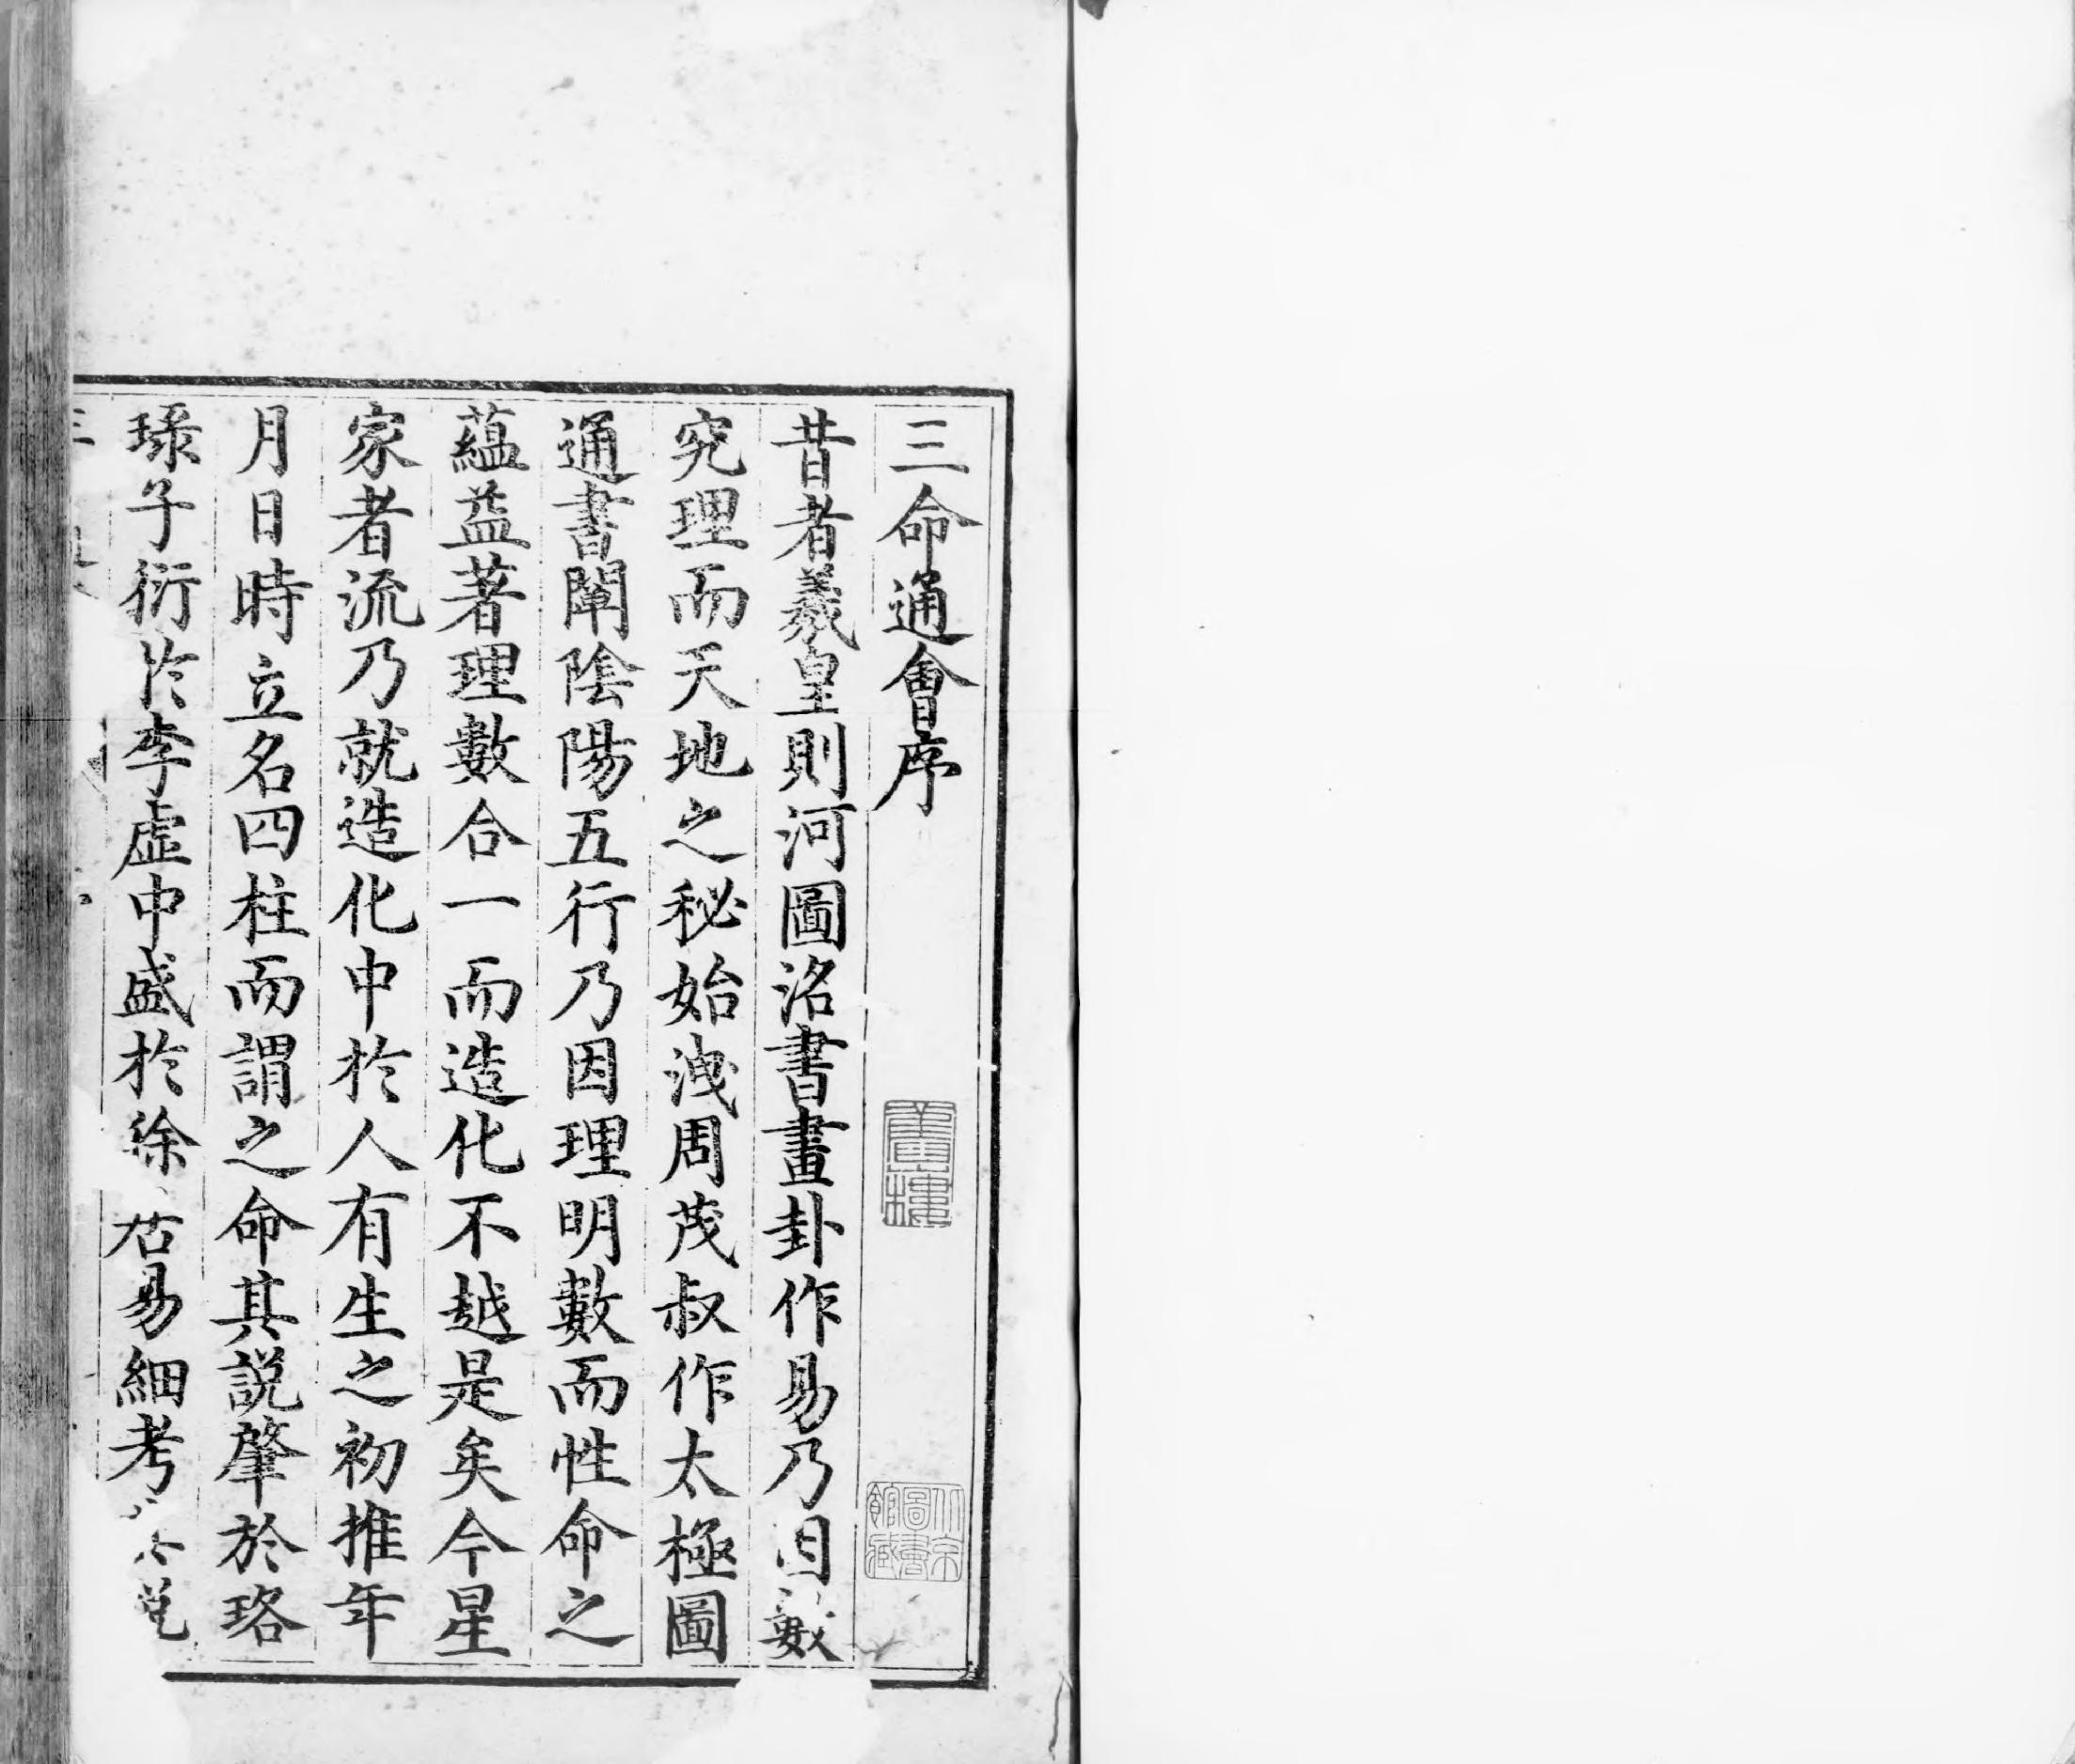 三命通會序
昔者羲皇則河圖洛書畫卦作易乃因數
究理而天地之秘始洩周茂叔作太極圖
通書闡陰陽五行乃因理明數而性命之
蘊益著理數合一而造化不越是矣今星
家者流乃就造化中於人有生之初推年
月日時立名四柱而謂之命其說肇於珞
琭子衍於李虛中盛於徐居易細考
樓
北京圖書館藏